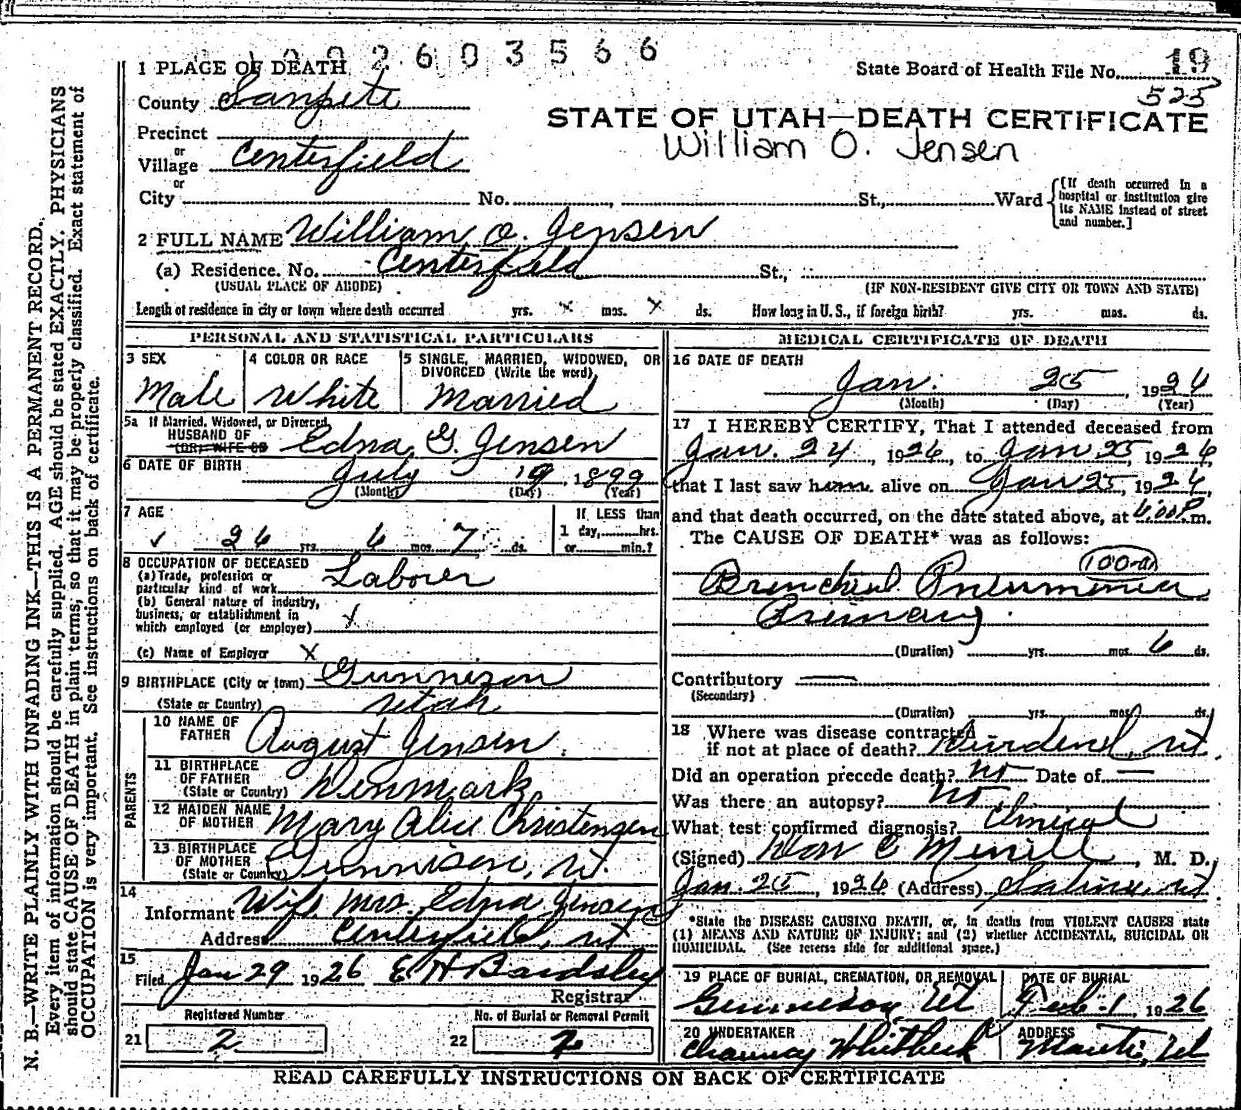 1 PLACE OF DEATH 2603566
State Board of Health File No. 19
County Sanpete 525
STATE OF UTAH—DEATH CERTIFICATE
William O. Jensen
Precinct
or
Village Centerfield
or
City No. , St., Ward [If death occurred in a hospital or institution give its NAME instead of street and number.]
2 FULL NAME William O. Jensen
(a) Residence. No. Centerfield St.,
(USUAL PLACE OF ABODE) (IF NON-RESIDENT GIVE CITY OR TOWN AND STATE)
Length of residence in city or town where death occurred yrs. x mos. x ds. How long in U. S., if foreign birth? yrs. mos. ds.
PERSONAL AND STATISTICAL PARTICULARS
3 SEX
Male
4 COLOR OR RACE
White
5 SINGLE, MARRIED, WIDOWED, OR
DIVORCED (Write the word),
Married
5a If Married, Widowed, or Divorced
HUSBAND OF Edna G. Jensen
(OR) WIFE OF
6 DATE OF BIRTH July 19, 1899
(Month) (Day) (Year)
7 AGE 26 yrs. 6 mos. 7 ds.
If LESS than
1 day, hrs.
or min.?
8 OCCUPATION OF DECEASED
(a) Trade, profession or
particular kind of work Laborer
(b) General nature of industry,
business, or establishment in
which employed (or employer)
(c) Name of Employer X
9 BIRTHPLACE (City or town) Gunnison
(State or Country) Utah
PARENTS
10 NAME OF
FATHER August Jensen
11 BIRTHPLACE
OF FATHER
(State or Country) Denmark
12 MAIDEN NAME
OF MOTHER Mary Alice Christensen
13 BIRTHPLACE
OF MOTHER
(State or Country) Gunnison, Ut.
14
Informant Wife Mrs Edna Jensen
Address Centerfield, Ut
15
Filed Jan 29 1926 E H Bardsley
Registrar
Registered Number
21 2
No. of Burial or Removal Permit
22 2
MEDICAL CERTIFICATE OF DEATH
16 DATE OF DEATH
Jan. 25, 1926
(Month) (Day) (Year)
17 I HEREBY CERTIFY, That I attended deceased from
Jan. 24, 1926, to Jan 25 1926
that I last saw him alive on Jan 25, 1926,
and that death occurred, on the date stated above, at m.
The CAUSE OF DEATH* was as follows:
Bronchial Pneumonia
Primary
(Duration) yrs. mos. 6 ds.
Contributory
(Secondary)
(Duration) yrs. mos. ds.
18 Where was disease contracted
if not at place of death? Ut
Did an operation precede death? no Date of —
Was there an autopsy? no
What test confirmed diagnosis? Clinical
(Signed) Don C Merrill, M. D.
Jan. 25, 1926 (Address) Salina Ut
*State the DISEASE CAUSING DEATH, or, in deaths from VIOLENT CAUSES state
(1) MEANS AND NATURE OF INJURY; and (2) whether ACCIDENTAL, SUICIDAL OR
HOMICIDAL. (See reverse side for additional space.)
19 PLACE OF BURIAL, CREMATION, OR REMOVAL
Gunnison, Ut
DATE OF BURIAL
Feb-1 1926
20 UNDERTAKER
Chauncy Whitbeck
ADDRESS
Manti, Ut
READ CAREFULLY INSTRUCTIONS ON BACK OF CERTIFICATE
N. B.—WRITE PLAINLY WITH UNFADING INK—THIS IS A PERMANENT RECORD.
Every item of information should be carefully supplied. AGE should be stated EXACTLY. PHYSICIANS
should state CAUSE OF DEATH in plain terms, so that it may be properly classified. Exact statement of
OCCUPATION is very important. See instructions on back of certificate.